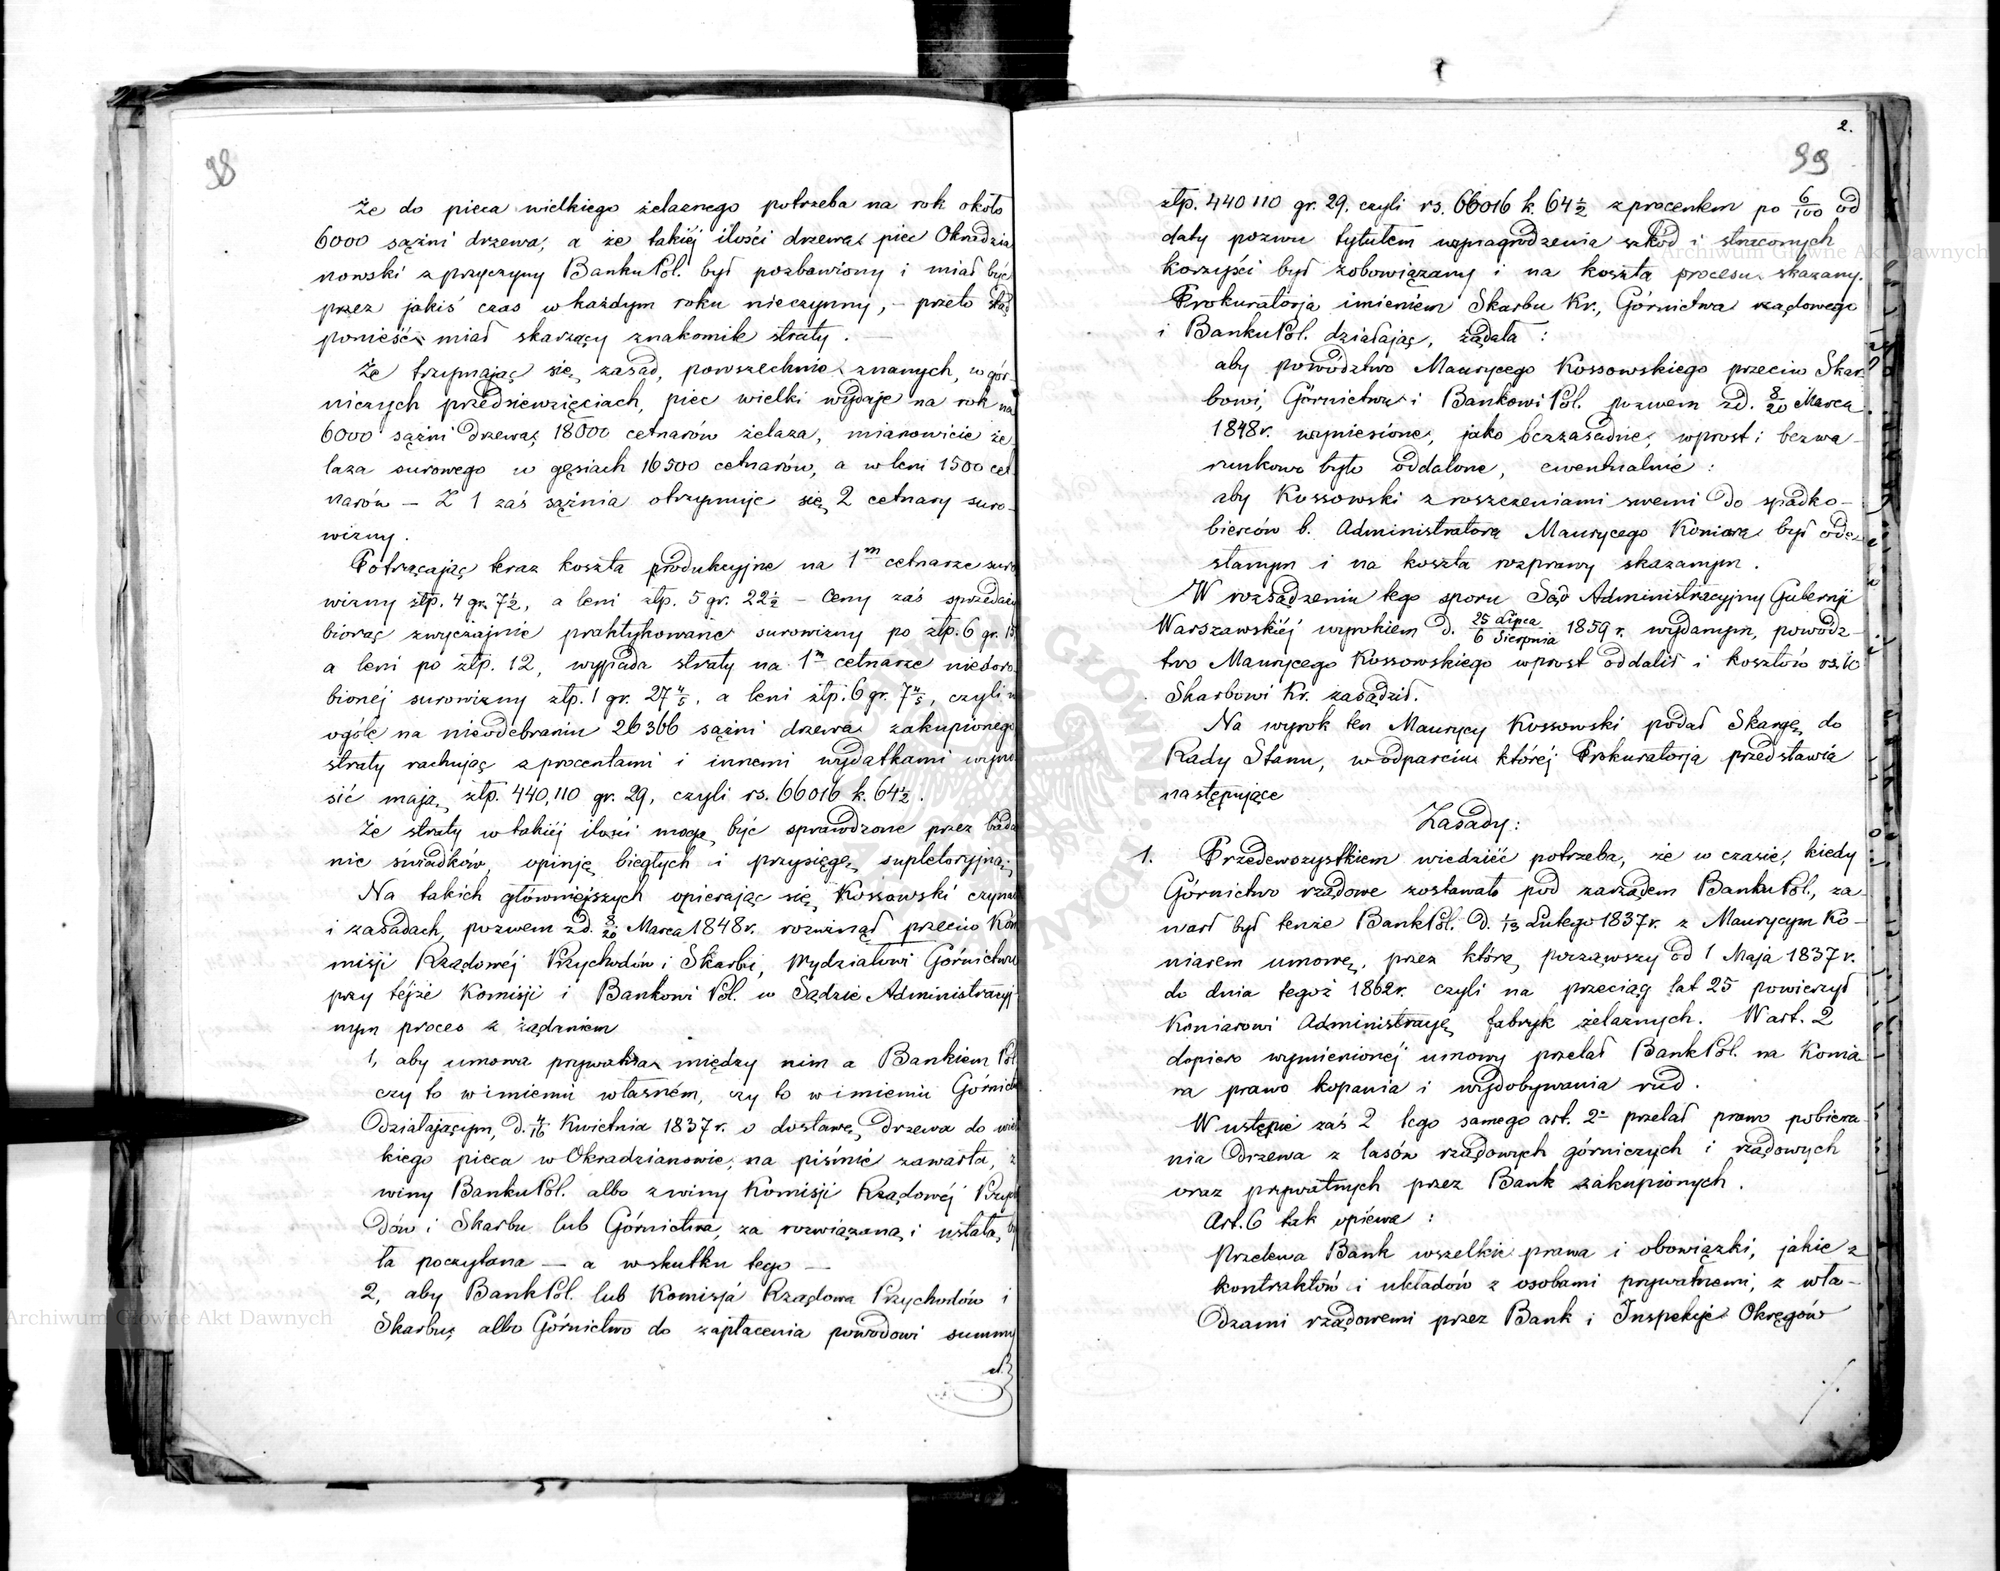 98
Że do pieca wielkiego żelaznego potrzeba na rok około
6000 sążni drzewa, a że takiéj ilości drzewa piec Okradzia
nowski z przyczyny Banku Pol. był pozbawiony i miał być
przez jakiś czas w każdym roku nieczynny, – przeto ztąd
ponieść miał skarżący znakomite straty. —
Że trzymając się zasad, powszechnie znanych, w gór-
niczych przedsiewzięciach, piec wielki wydaje na rok na
6000 sążni drzewa, 18000 cetnarów żelaza, mianowicie że
laza surowego w gęsiach 16500 cetnarów, a w leni 1500 cet
narów – Z 1 zaś sążnia otrzymuje się 2 cetnary suro-
wizny.
Potrącając teraz koszta produkcyjne na 1m cetnarze suro
wizny złp. 4 gr. 7½, a leni złp. 5 gr. 22½ – Ceny zaś sprzedaży
biorąc zwyczajnie praktykowane surowizny po złp. 6 gr. 15
a leni po złp. 12, wypada straty na 1m cetnarze niedoro
bionéj surowizny złp. 1 gr. 27 4/5, a leni złp. 6 gr. 7 4/5, czyli w
ogóle na nieodebraniu 26366 sążni drzewa zakupionego
straty rachując z procentami i innemi wydatkami wyno
sić mają złp. 440,110 gr. 29, czyli rs. 66016 k. 64½.
Że straty w takiéj ilości mogą być sprawdzone przez bada
nie świadków, opinję biegłych i przysięgę supletoryjną;
Na takich główniejszych opierając się Kossowski czynach
i zasadach, pozwem z d. 8/20 Marca 1848 r. rozwinął przeciw Kom
misji Rządowéj Przychodów i Skarbu, Wydziałowi Górnictwa
przy téjże Komisji i Bankowi Pol. w Sądzie Administracyj
nym proces z żądaniem
1, aby umowa prywatna między nim a Bankiem Pol.
czy to w imieniu własném, czy to w imieniu Górnictwa
działającym, d. 4/16 Kwietnia 1837 r. o dostawę drzewa do wiel
kiego pieca w Okradzianowie, na piśmie zawarta, z
winy Banku Pol. albo z winy Komisji Rządowéj Przycho
dów i Skarbu lub Górnictwa, za rozwiązaną i ustałą, by
ła poczytana – a wskutku tego –
2, aby Bank Pol. lub Komisja Rządowa Przychodów i
Skarbu, albo Górnictwo do zapłacenia powodowi summy
2.
99
złp. 440110 gr. 29. czyli rs. 66016 k. 64½ z procentem po 6/100 od
daty pozwu tytułem wynagrodzenia szkód i straconych
korzyści był zobowiązany i na koszta procesu skazany.
Prokuratorja imieniem Skarbu Kr., Górnictwa rządowego
i Banku Pol. działając, żądała :
aby powództwo Maurycego Kossowskiego przeciw Skar
bowi, Górnictwu i Bankowi Pol. pozwem z d. 8/20 Marca
1848 r. wyniesione, jako bezzasadne, wprost i bezwa-
runkowo było oddalone, ewentualnie :
aby Kossowski z roszczeniami swemi do spadko-
bierców b. Administratora Maurycego Koniara był ode-
słanym i na koszta rozprawy skazanym.
W rozsądzeniu tego sporu Sąd Administracyjny Gubernji
Warszawskiéj wyrokiem d. 25 Lipca/6 Sierpnia 1859 r. wydanym, powódz-
two Maurycego Kossowskiego wprost oddalił i kosztów rs. 10
Skarbowi Kr. zasądził.
Na wyrok ten Maurycy Kossowski podał Skargę do
Rady Stanu, w odparciu któréj Prokuratorja przedstawia
następujące
Zasady:
1. Przedewszystkiem wiedzieć potrzeba, że w czasie, kiedy
Górnictwo rządowe zostawało pod zarządem Banku Pol., za-
warł był tenże Bank Pol. d. 1/13 Lutego 1837 r. z Maurycym Ko-
niarem umowę, przez którą począwszy od 1 Maja 1837 r.
do dnia tegoż 1862 r. czyli na przeciąg lat 25 powierzył
Koniarowi Administracyę fabryk żelaznych. W art. 2
dopiero wymienionéj umowy przelał Bank Pol. na Konia
ra prawo kopania i wydobywania rud.
W ustępie zaś 2 tego samego art. 2o przelał prawo pobiera
nia drzewa z lasów rządowych górniczych i rządowych
oraz prywatnych przez Bank zakupionych.
Art. 6 tak opiewa :
Przelewa Bank wszelkie prawa i obowiązki, jakie z
kontraktów i układów z osobami prywatnemi, z wła-
dzami rządowemi przez Bank i Inspekcje Okręgów
Archiwum Główne Akt Dawnych
Archiwum Główne Akt Dawnych